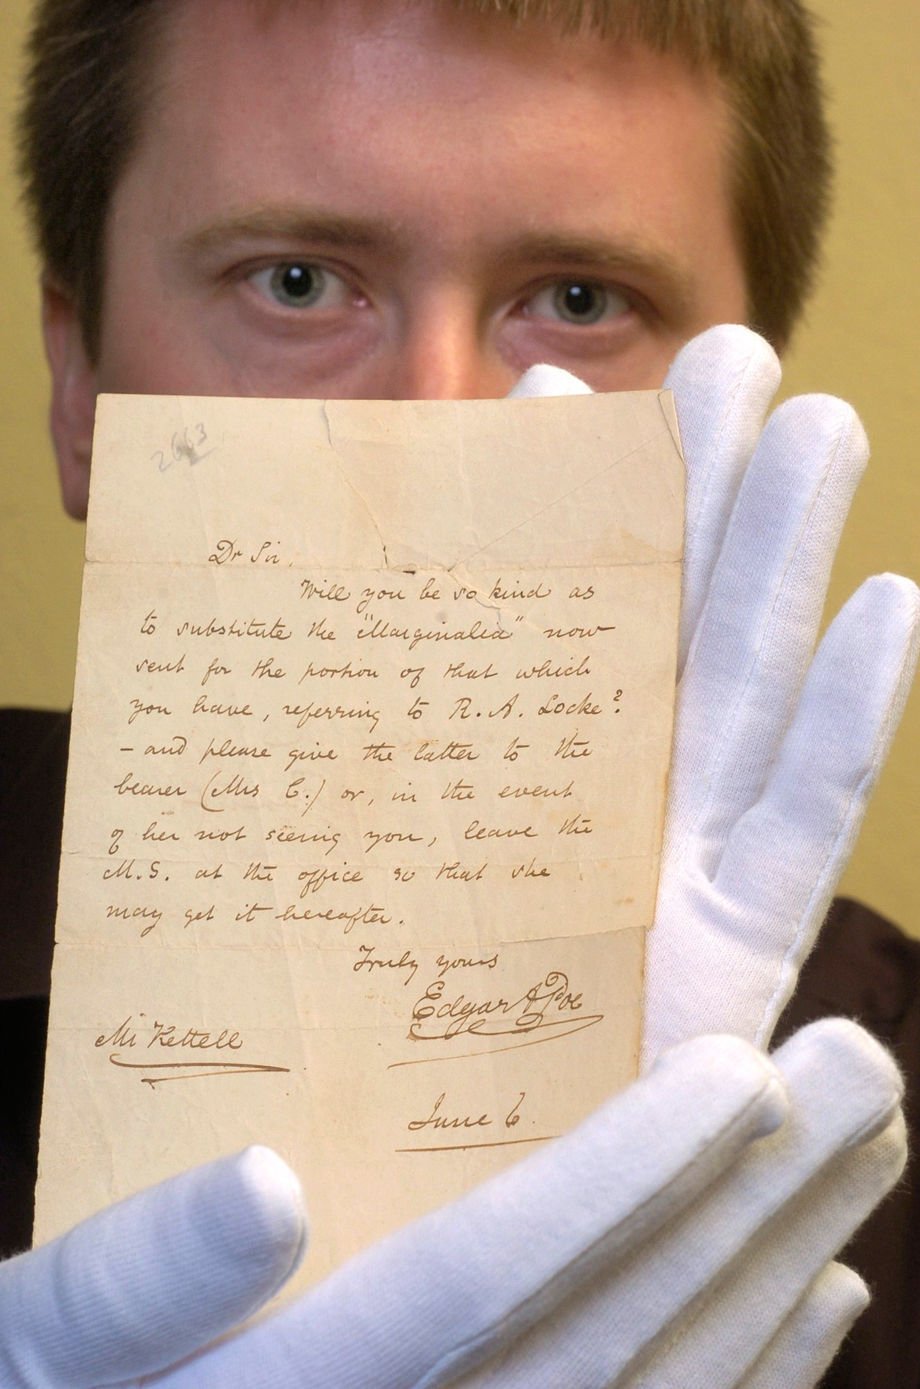 2663
Dr Sir,
Will you be so kind as
to substitute the "Marginalia" now
sent for the portion of that which
you have, referring to R. A. Locke?
– and please give the latter to the
bearer (Mrs C.) or, in the event
of her not seeing you, leave the
M.S. at the office so that she
may get it hereafter.
Truly yours
Edgar A Poe
Mr Kettell
June 6.